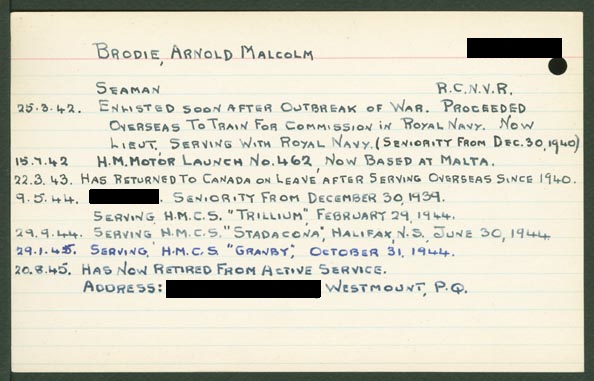 BRODIE, ARNOLD MALCOLM
SEAMAN R.C.N.V.R.
25.3.42. ENLISTED SOON AFTER OUTBREAK OF WAR. PROCEEDED
OVERSEAS TO TRAIN FOR COMMISSION IN ROYAL NAVY. NOW
LIEUT, SERVING WITH ROYAL NAVY. (SENIORITY FROM DEC. 30, 1940)
15.7.42 H.M. MOTOR LAUNCH NO. 462, NOW BASED AT MALTA.
22.3.43. HAS RETURNED TO CANADA ON LEAVE AFTER SERVING OVERSEAS SINCE 1940.
9.5.44. . SENIORITY FROM DECEMBER 30, 1939.
SERVING H.M.C.S. "TRILLIUM", FEBRUARY 29, 1944.
29.9.44. SERVING H.M.C.S. "STADACONA", HALIFAX, N.S. JUNE 30, 1944
29.1.45. SERVING H.M.C.S "GRANBY", OCTOBER 31, 1944.
20.8.45. HAS NOW RETIRED FROM ACTIVE SERVICE.
ADDRESS: WESTMOUNT, P.Q.